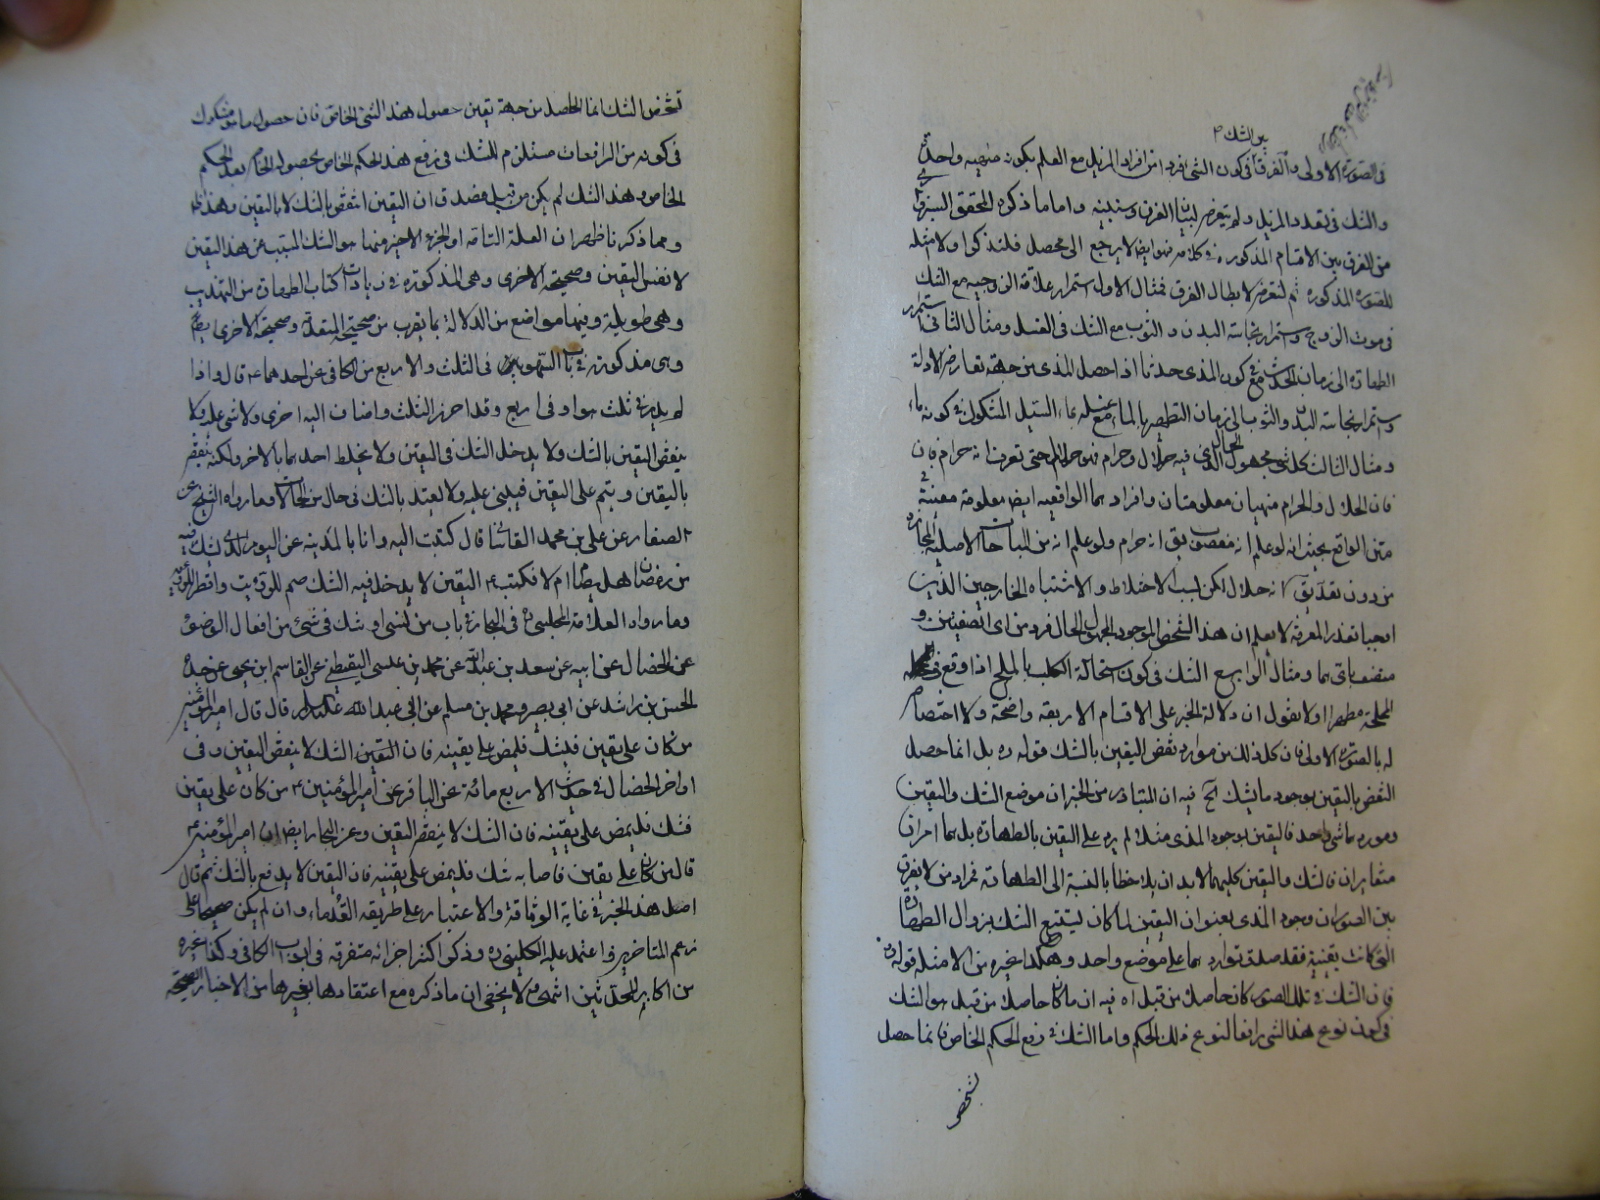 بين الشك
في الصورة الاولى والفرق في كون الشيء فردا من افراد المزيل مع العلم بكونه واحد
والشك في تعدد المزيل ولم يتعرض لبيان الفرق وسنبينه واما ما ذكره المحقق السبزواري
من الفرق بين الاقسام المذكورة في كلامه فهو ايضا لا يرجع الى محصل فلنذكر اولا امثلة
للصورة المذكورة ثم لنتعرض لابطال الفرق فمثال الاول استمرار علاقة الزوجية مع الشك
في موت الزوج واستمرار نجاسة البدن والثوب مع الشك في الغسل ومثال الثاني استمرار
الطهارة الى زمان الحدث مع كون المذي حدثا اذا حصل المذي من جهة تعارض الادلة
واستمرار نجاسة البدن والثوب الى زمان التطهير بالماء مع غسله بماء السيل المشكوك في كونه ماء
ومثال الثالث كلشيء مجهول الحال الذي فيه حلال وحرام فهو حلال حتى تعرف انه حرام فان
فان الحلال والحرام منهيان معلومتان وافرادهما الواقعية ايضا معلومة معينة في
متن الواقع بحيث انه لو علم انه مغصوب يق انه حرام ولو علم انه من المباحات الاصلية
من دون تعد يق انه حلال لكن لسبب الاختلاط والاشتباه الخارجين الذين
اوجبا تعذر المعرفة لا يعلم ان هذا الشخص الموجود المجهول الحال فرد من اي الصنفين و
ومثال الرابع الشك في كون استحالة الكلب بالملح اذا وقع في
المملحة مطهرا اولا نقول ان دلالة الخبر على الاقسام الاربعة واضحة ولا اختصاص
له بالصورة الاولى فان كل ذلك من موارد نقض اليقين بالشك قوله ره بل انما حصل
النقض باليقين بوجود ما يشك اتح فيه ان المتبادر من الخبر ان موضع الشك واليقين
ومورده شيء واحد فاليقين بوجود المذي مثلا لم يرد على اليقين بالطهارة بل هما امران
متغايران فالشك واليقين كليهما لا بد ان يلاحظا بالنسبة الى الطهارة فمراد من لا يفرق
بين الصور ان وجود المذي بعنوان اليقين لما كان يستتبع الشك بزوال الطهارة
التي كانت يقينية فقد صدق تواردهما على موضع واحد وهكذا غيره من الامثلة قوله ره
فان الشك في تلك الصور كان حاصلا من قبل اه فيه ان ما كان حاصلا من قبل هو الشك
في كون نوع هذا الشيء رافعا لنوع ذلك الحكم واما الشك في رفع الحكم الخاص فانما حصل
تشخص
تشخص الشك انما الحاصل من جهة يقين حصول هذا الشيء الخاص فان حصول ما هو مشكوك
في كونه من الرافعات مستلزم للشك في رفع هذا الحكم الخاص بحصول الخاص بعد الحكم
الخاص وهذا الشك لم يكن من قبل فصدق ان اليقين انتقض بالشك لا باليقين وهذا ظاهر
ومما ذكرنا ظهر ان العلة التامة او الجزء الاخير منها هو الشك المسبب عن هذا اليقين
لا نفس اليقين وصحيحته الاخرى وهي المذكورة في زيادات كتاب الطهارة من التهذيب
وهي طويلة وفيها مواضع من الدلالة بما يقرب من صحيحته المتقدمة وصحيحته الاخرى ايضا
وهي مذكورة في باب السهو في الثلث والاربع من الكافي عن احدهما ع قال واذا
لم يدر في ثلث هو او في اربع وقد احرز الثلث واضاف اليه اخرى ولا شيء عليه ولا
ينقض اليقين بالشك ولا يدخل الشك في اليقين ولا يخلط احدهما بالاخر ولكنه ينقض الشك
باليقين ويتم على اليقين فيبني عليه ولا يعتد بالشك في حال من الحالات وما رواه الشيخ عن
الصفار عن علي بن محمد القاساني قال كتبت اليه وانا بالمدينة عن اليوم الذي يشك فيه
من رمضان هل يصام ام لا فكتب ع اليقين لا يدخل فيه الشك صم للرؤية وافطر للرؤية
وما رواه العلامة المجلسي ره في البحار في باب من نسي او شك في شيء من افعال الوضوء
عن الخصال عن ابيه عن سعد بن عبد الله عن محمد بن عيسى اليقطيني عن القاسم ابن يحيى عن جده
الحسن بن راشد عن ابي بصير ومحمد بن مسلم عن ابي عبد الله عليه السلام قال قال امير المؤمنين
من كان على يقين فشك فليمض على يقينه فان اليقين الشك لا ينقض اليقين وفي
اواخر الخصال في حديث الاربع مائة عن الباقر عن امير المؤمنين ع من كان على يقين
فشك فليمض على يقينه فان الشك لا ينقض اليقين وعن البحار ايضا ان امير المؤمنين ع
قال من كان على يقين فاصابه شك فليمض على يقينه فان اليقين لا يدفع بالشك ثم قال
اصل هذا الخبر في غاية الوثاقة والاعتبار على طريقة القدماء وان لم يكن صحيحا على
زعم المتاخرين واعتمد عليه الكليني ره وذكر اكثر اجزائه متفرقة في ابواب الكافي وكذا غيره
من اكابر المحدثين انتهى ولا يخفى ان ما ذكره مع اعتقادها بغيرها من الاخبار الصحيحة